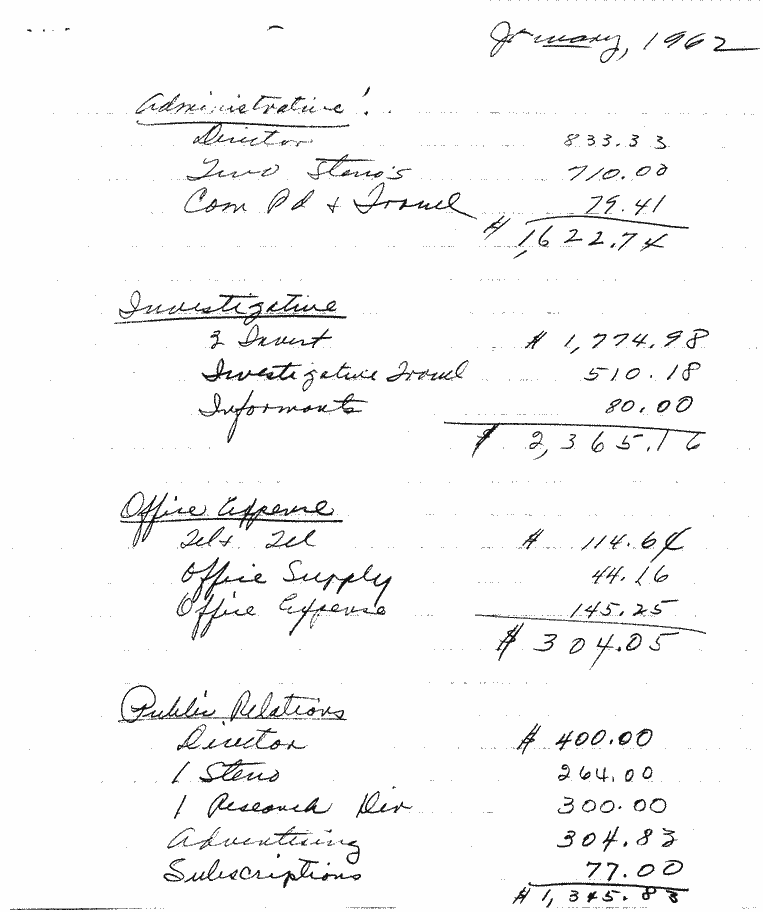 January, 1962
Administrative:
Director 833.33
Two Steno's 710.00
Com Pd & Travel 79.41
$ 1,622.74
Investigative
3 Invest $ 1,774.98
Investigative Travel 510.18
Informants 80.00
$ 2,365.16
Office Expense
Tel & Tel $ 114.64
Office Supply 44.16
Office Expense 145.25
$ 304.05
Public Relations
Director $ 400.00
1 Steno 264.00
1 Research Div 300.00
Advertising 304.83
Subscriptions 77.00
$ 1,345.83